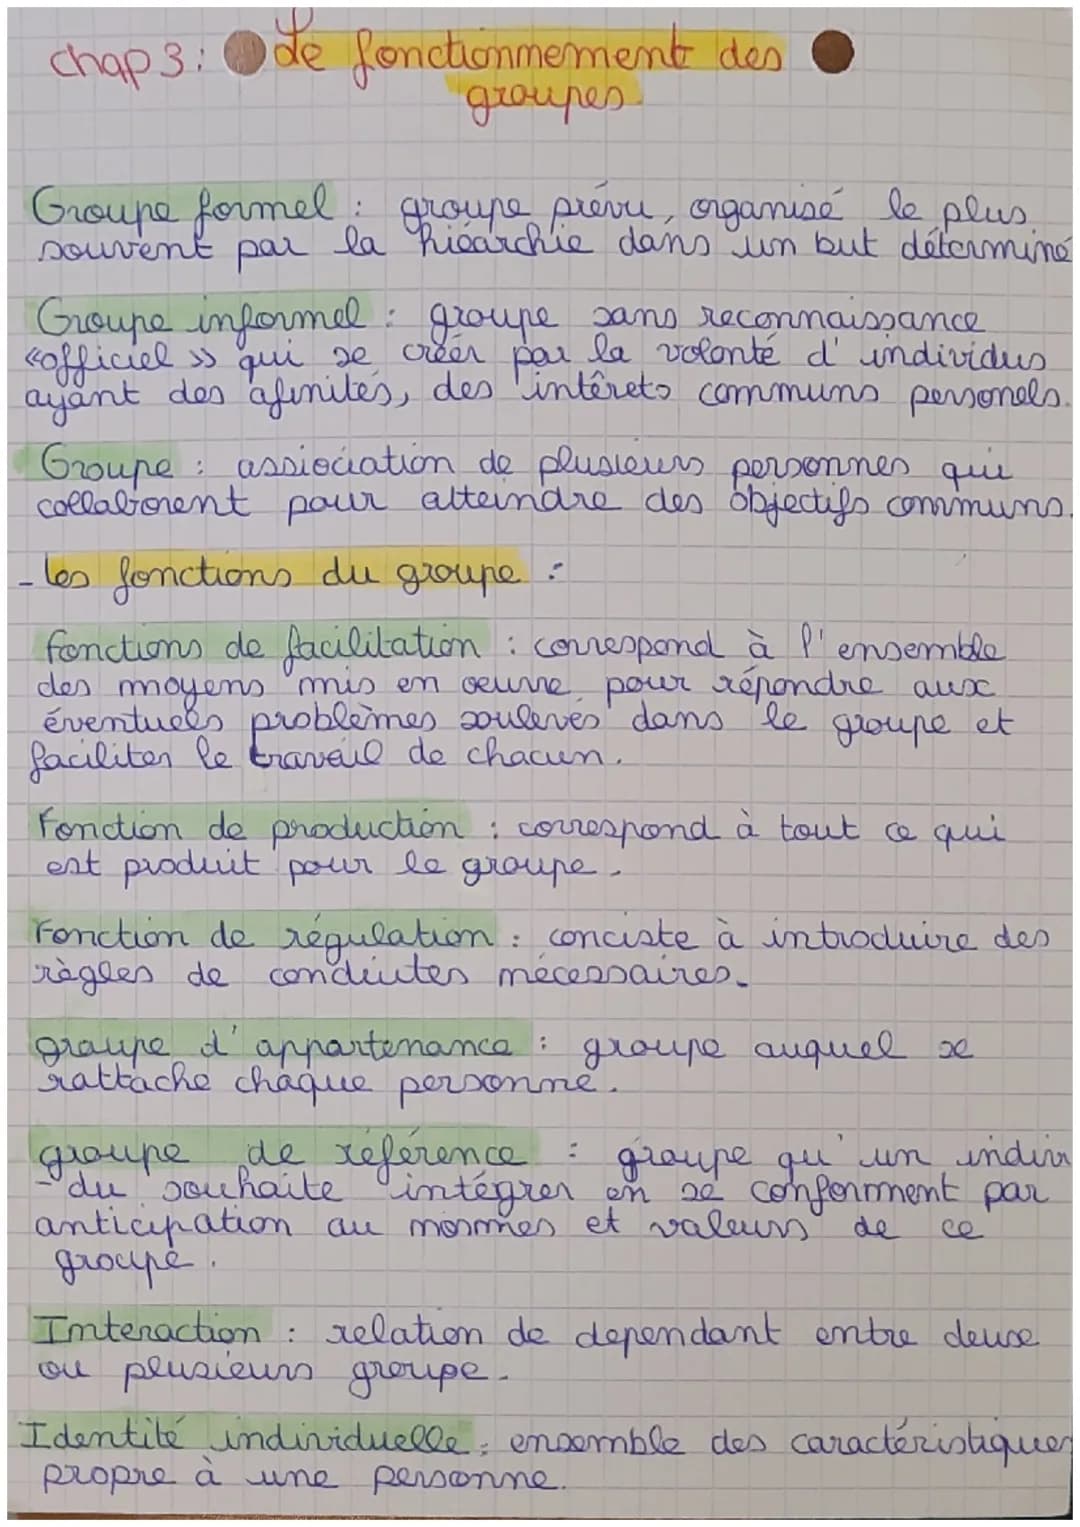 chap 3: Le fonctionnement des
groupes
Groupe formel : groupe prévu, organisé le plus
souvent par la hiéarchie dans un but déterminé
Groupe informel : groupe sans reconnaissance
«officiel» qui se créer par la volonté d'individus
ayant des afinités, des intérets communs personels.
Groupe : assiociation de plusieurs personnes qui
collaborent pour atteindre des objectifs communs.
- les fonctions du groupe :
Fonctions de facilitation : correspond à l'ensemble
des moyens mis en oeuvre pour répondre aux
éventuels problèmes soulevés dans le groupe et
faciliter le travail de chacun.
Fonction de production : correspond à tout ce qui
est produit pour le groupe.
Fonction de régulation : conciste à introduire des
règles de conduites nécessaires.
groupe d'appartenance : groupe auquel se
rattache chaque personne.
groupe de référence : groupe qu'un indivi
-du souhaite intégrer en se conforment par
anticipation au normes et valeurs de ce
groupe.
Interaction : relation de dependant entre deux
ou plusieurs groupe.
Identité individuelle : ensemble des caractéristiques
propre à une personne.